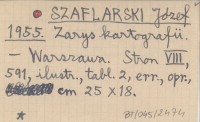 SZAFLARSKI Józef
1955. Zarys kartografii.
- Warszawa. Stron VIII,
591, ilustr., tabl. 2, err., opr.,
cm 25 X 18.